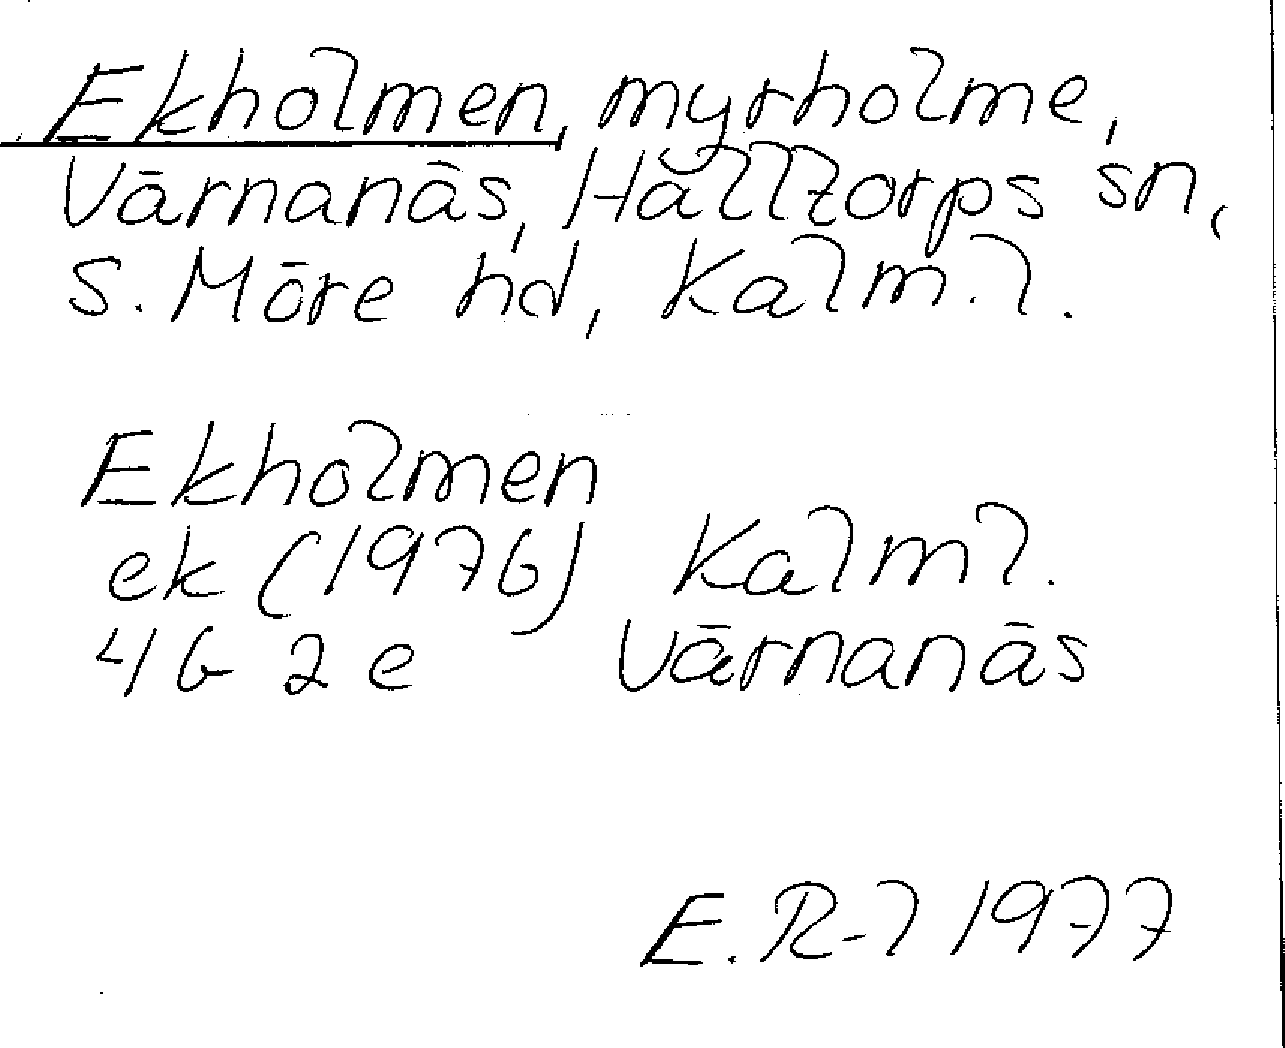 Ekholmen, myrholme,
Värnanäs, Halltorps sn,
S. Möre hd, Kalm. l.
Ekholmen
ek (1976) Kalm l.
4G 2e Värnanäs
E. R-l 1977